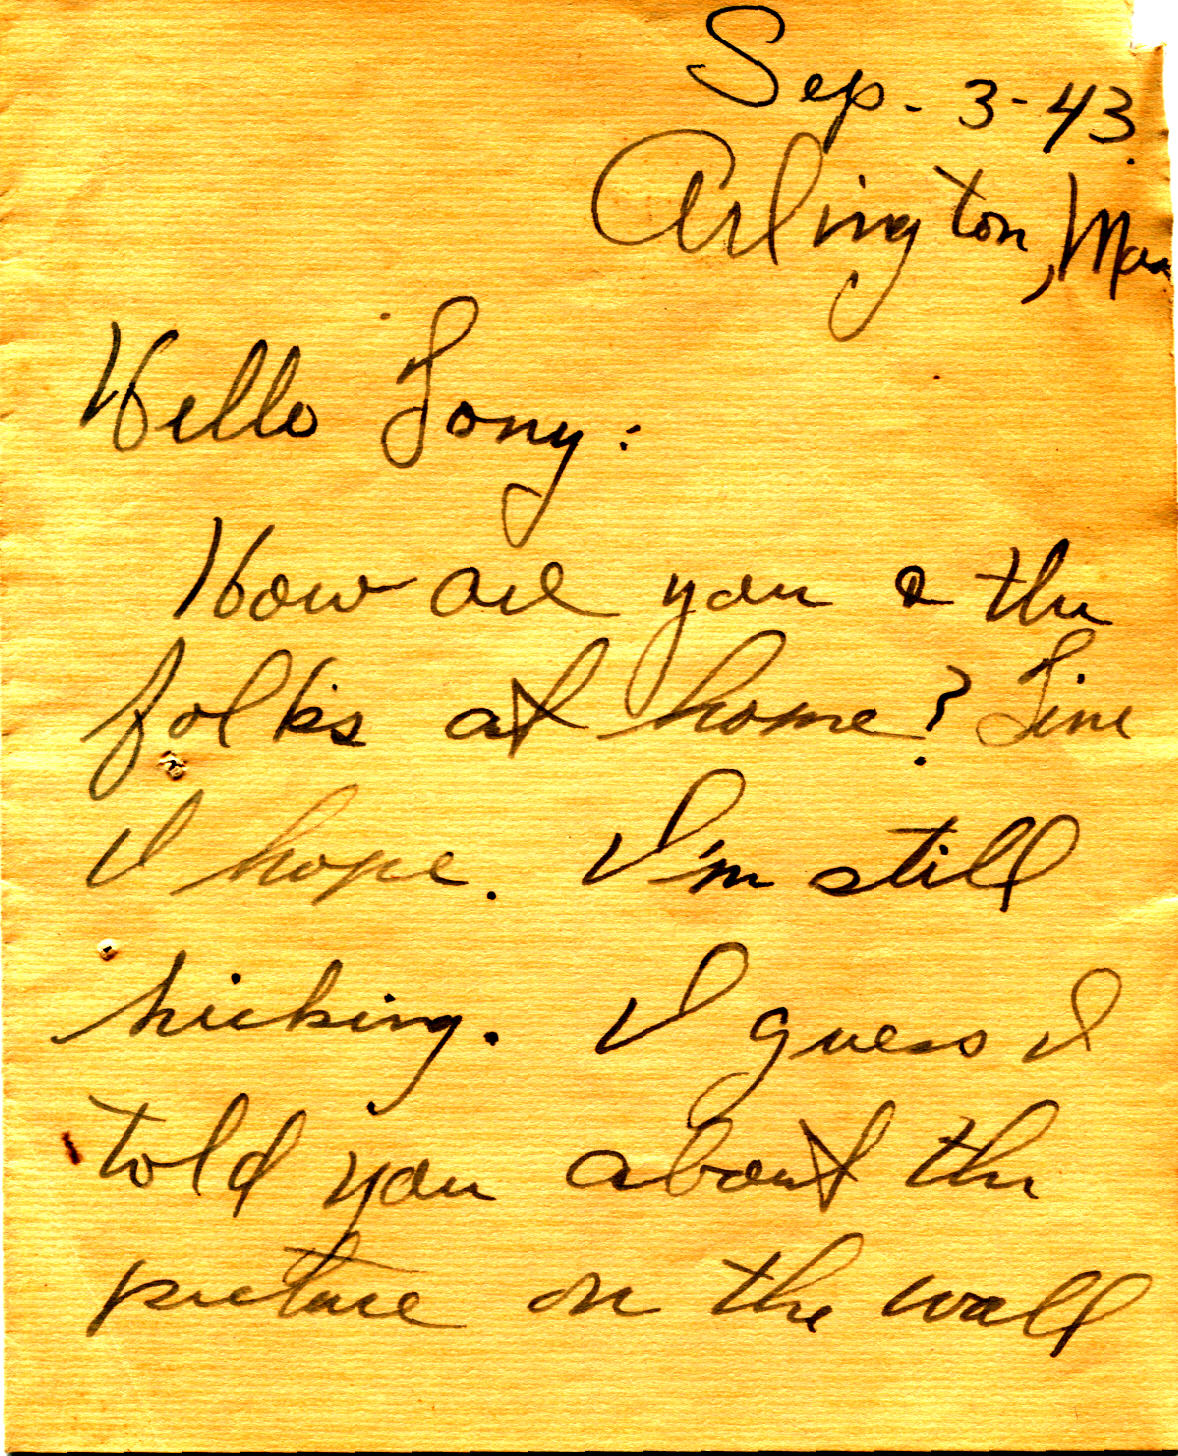 Sep. 3-43.
Arlington, Mass
Hello Tony:
How are you & the
folks at home? Fine
I hope. I'm still
kicking. I guess I
told you about the
picture on the wall